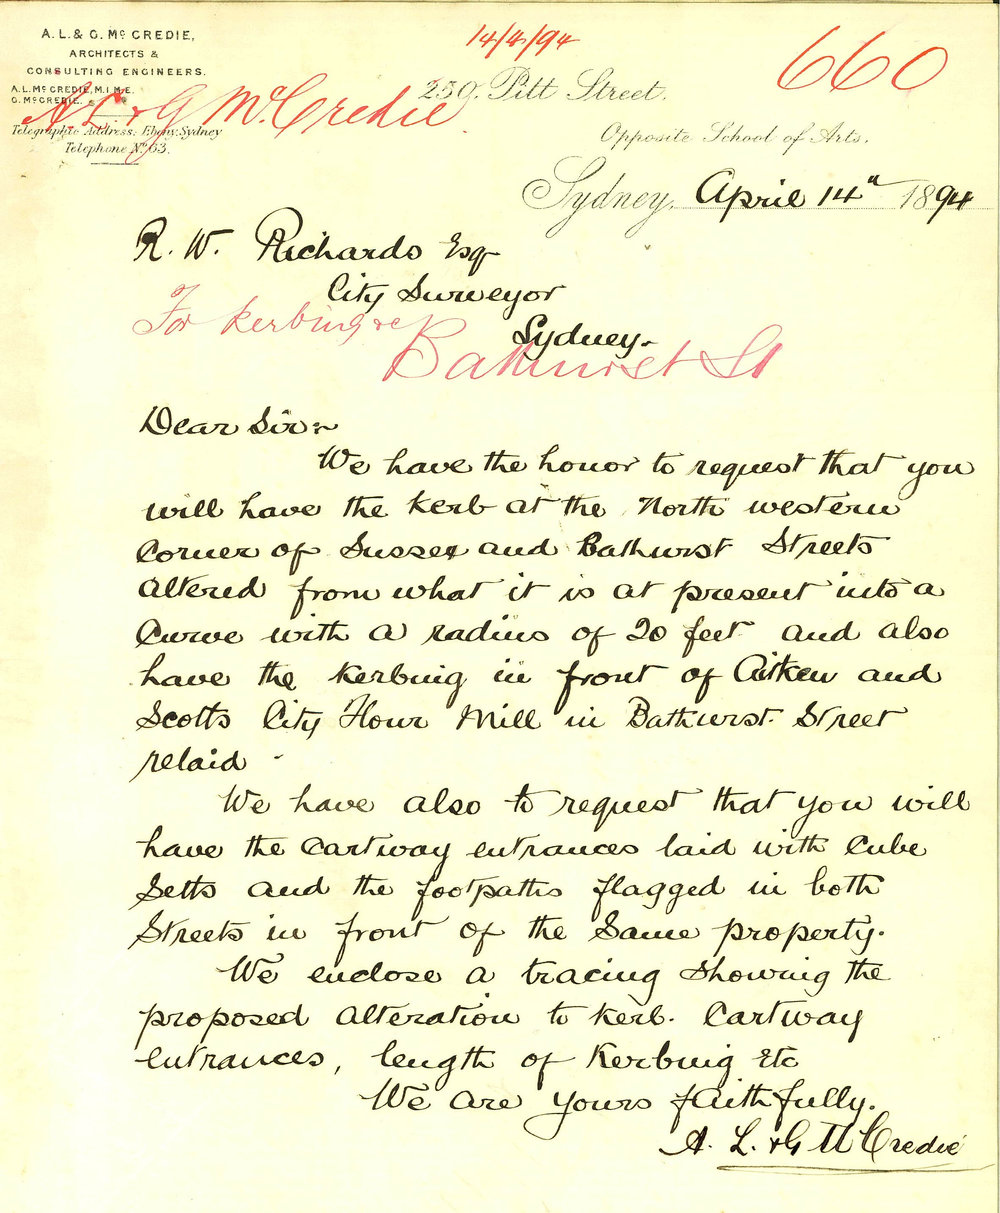 A. L. & G. Mc CREDIE,
ARCHITECTS &
CONSULTING ENGINEERS.
A. L. Mc CREDIE, M.I.M.E.
G. McCREDIE.
Telegraphic Address: Ebony, Sydney
Telephone No. 63.
14/4/94
660
A. L & G McCredie
250, Pitt Street.
Opposite School of Arts.
Sydney, April 14th 1894
R. W. Richards Esq
City Surveyor
Sydney.
For Kerbing &c
Bathurst St
Dear Sir:~
We have the honor to request that you
will have the kerb at the North western
Corner of Sussex and Bathurst Streets
altered from what it is at present into a
Curve with a radius of 20 feet and also
have the kerbing in front of Aitken and
Scotts City Flour Mill in Bathurst Street
relaid -
We have also to request that you will
have the cartway entrances laid with Cube
Setts and the footpaths flagged in both
Streets in front of the Same property.
We enclose a tracing showing the
proposed alteration to kerb. Cartway
entrances, length of Kerbing Etc
We are yours faithfully.
A. L. & G McCredie